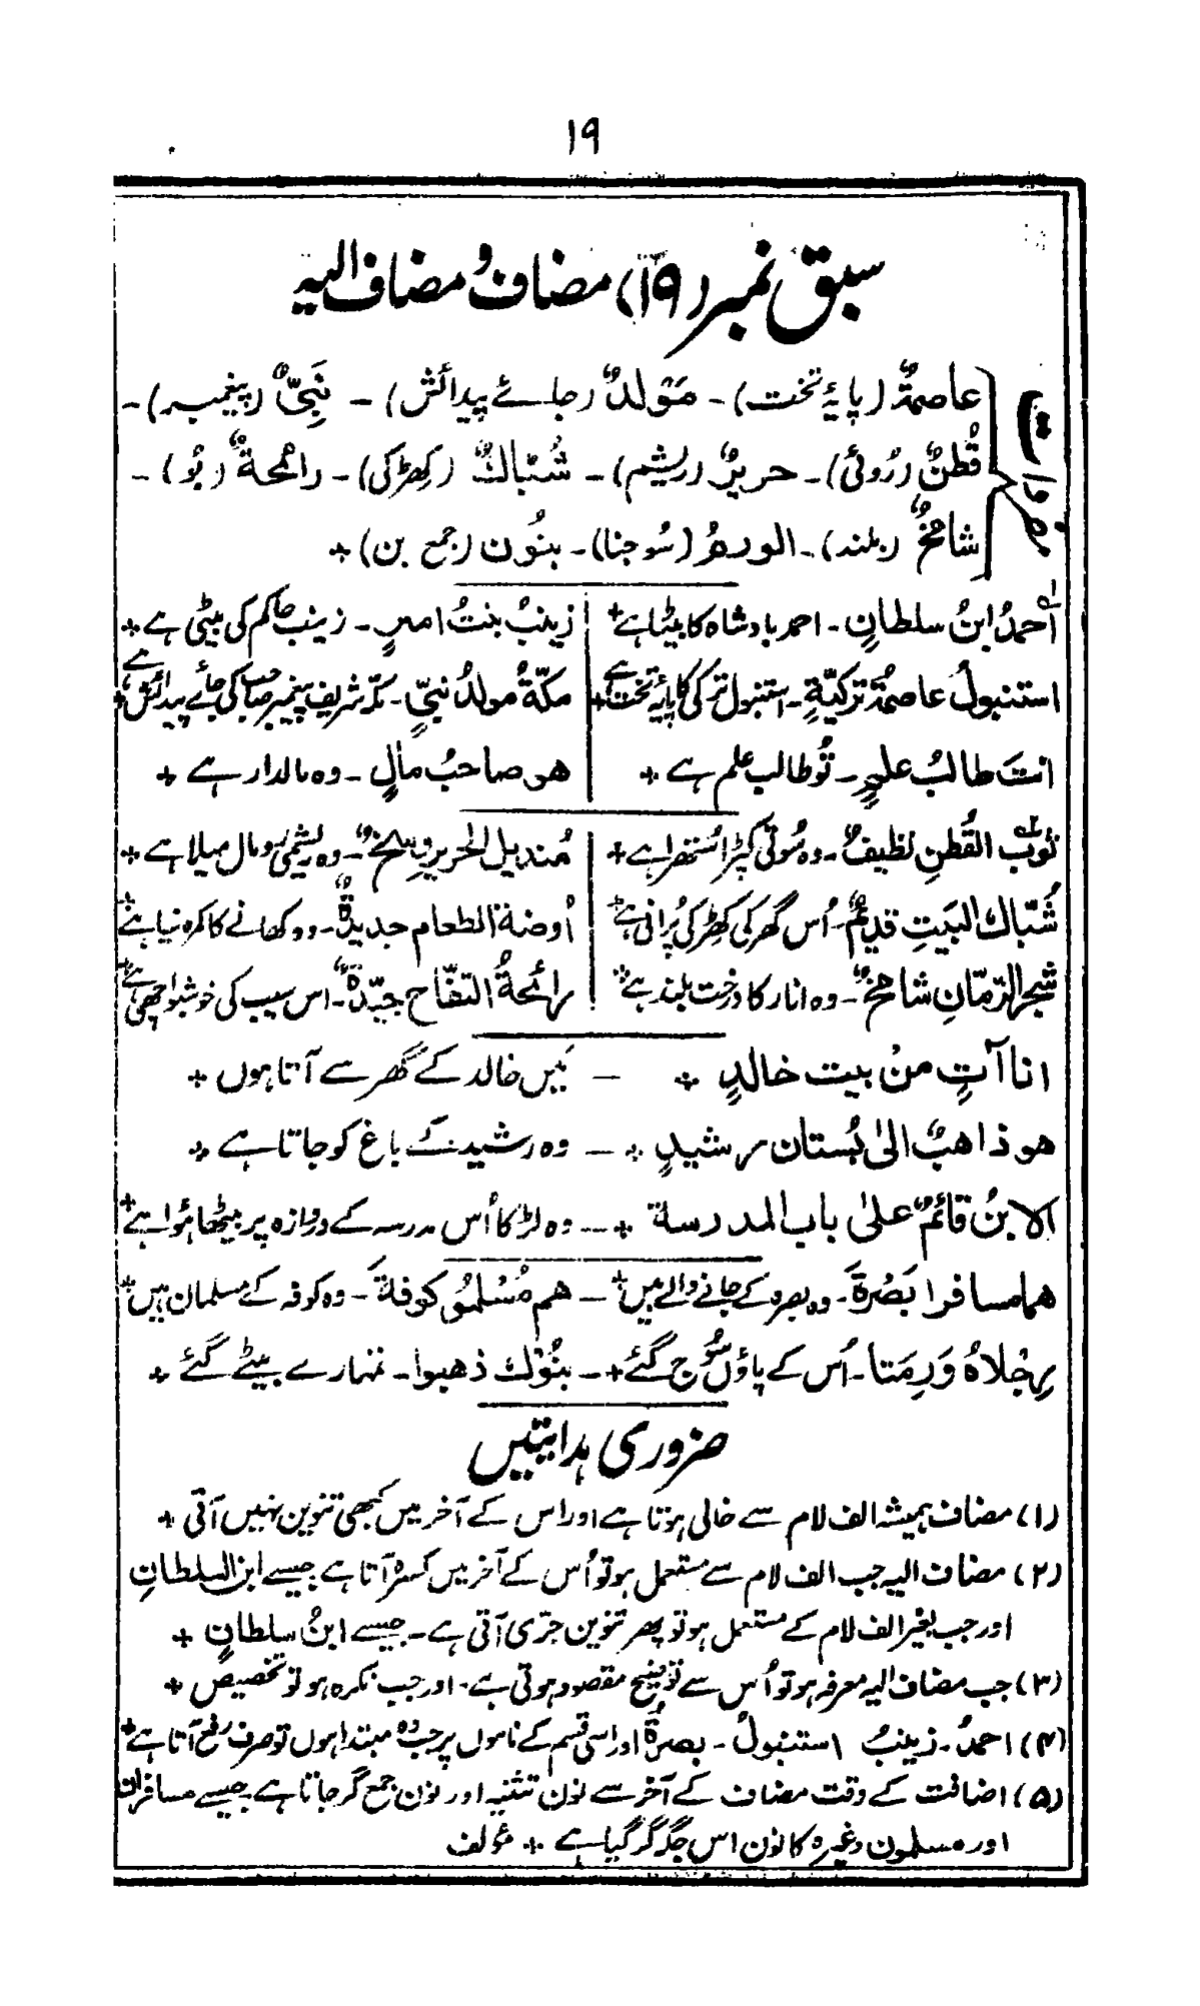 ۱۹
سبق نمبر (۱۹) مضاف و مضاف الیہ
مفردات
عاصمۃٌ (پایۂ تخت) ـ مَوْلدٌ (جائے پیدائش) ـ نَبِیٌّ (پیغمبر) ـ
قُطنٌ (رُوئی) ـ حریرٌ (ریشم) ـ شُبّاكٌ (کھڑکی) ـ رائحۃٌ (بُو) ـ
شامخٌ (بلند) ـ الورمُ (سُوجنا) ـ بنُون (جمع بن) +
احمدُ ابنُ سلطانٍ ـ احمد بادشاہ کا بیٹا ہے + زینبُ بنتُ امیرٍ ـ زینب حاکم کی بیٹی ہے +
استنبولُ عاصمۃُ ترکیّۃٍ ـ استنبول ترکی کا پایۂ تخت ہے + مکّۃُ مولدُ نبیٍّ ـ مکہ شریف پیغمبر صاحب کی جائے پیدائش ہے +
انتَ طالبُ علمٍ ـ تُو طالب علم ہے + ھو صاحبُ مالٍ ـ وہ مالدار ہے +
ثوبُ القُطنِ نظیفٌ ـ وہ سُوتی کپڑا ستھرا ہے + مندیل الحریرِ وسخٌ ـ وہ ریشمی رومال میلا ہے +
شُبّاك البَیتِ قدیمٌ ـ اُس گھر کی کھڑکی پُرانی ہے + اُوضۃ الطعام جدیدۃٌ ـ وہ کھانے کا کمرہ نیا ہے +
شجر الرّمّانِ شامخٌ ـ وہ انار کا درخت بلند ہے + رائحۃُ التفّاح جیّدۃٌ ـ اس سیب کی خوشبو اچھی ہے +
انا آتٍ منْ بیت خالدٍ + ـ مَیں خالد کے گھر سے آتا ہوں +
ھو ذاھبٌ الیٰ بُستان رشیدٍ + ـ وہ رشید کے باغ کو جاتا ہے +
الابنُ قائمٌ علیٰ باب المدرسۃ + ـ وہ لڑکا اُس مدرسہ کے دروازہ پر بیٹھا ہؤا ہے +
ھما مسافرا بَصْرۃَ ـ وہ بصرہ کے جانے والے ہیں + ـ ھم مُسْلمُو کوفۃَ ـ وہ کوفہ کے مسلمان ہیں +
رِجْلاہُ وَرِمَتا ـ اُس کے پاؤں سُوج گئے + ـ بنُوْك ذھبوا ـ تمہارے بیٹے گئے +
ضروری ہدایتیں
(۱) مضاف ہمیشہ الف لام سے خالی ہوتا ہے اور اس کے آخر میں کبھی تنوین نہیں آتی +
(۲) مضاف الیہ جب الف لام سے مستعمل ہو تو اُس کے آخر میں کسرہ آتا ہے جیسے ابن السلطانِ
اور جب بغیر الف لام کے مستعمل ہو تو پھر تنوین جرّی آتی ہے ـ جیسے ابنُ سلطانٍ +
(۳) جب مضاف الیہ معرفہ ہو تو اُس سے توضیح مقصود ہوتی ہے ـ اور جب نکرہ ہو تو تخصیص +
(۴) احمدُ ـ زینبُ استنبولُ ـ بصرۃُ اور اسی قسم کے ناموں پر جب وہ مبتدا ہوں تو صرف رفع آتا ہے +
(۵) اضافت کے وقت مضاف کے آخر سے نون تثنیہ اور نون جمع گر جاتا ہے جیسے مسافران
اور مسلمون وغیرہ کا نون اس جگہ گر گیا ہے + مؤلف